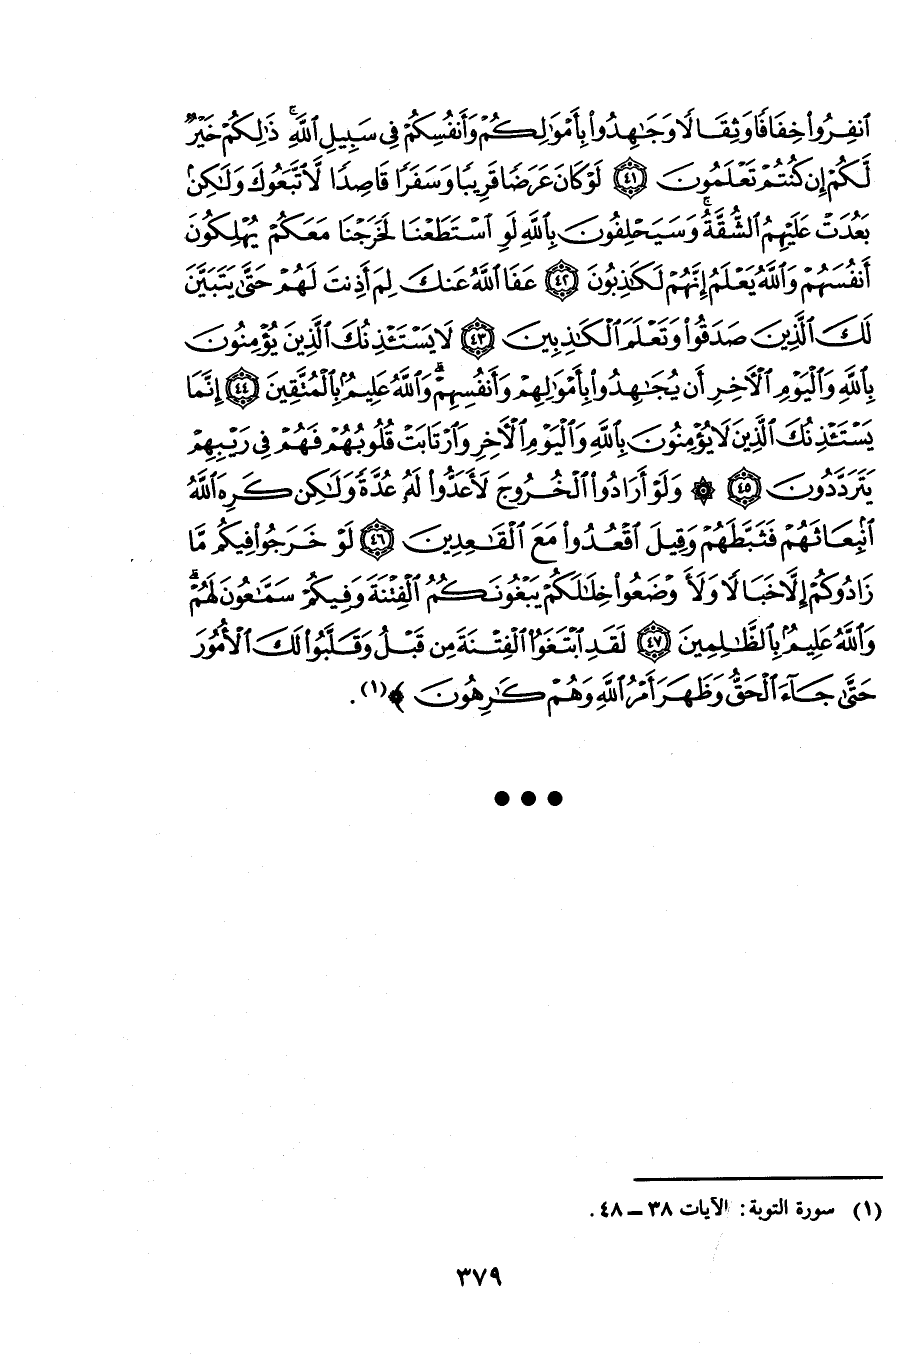 ٱنفِرُوا۟ خِفَافًا وَثِقَالًا وَجَـٰهِدُوا۟ بِأَمْوَٰلِكُمْ وَأَنفُسِكُمْ فِى سَبِيلِ ٱللَّهِ ۚ ذَٰلِكُمْ خَيْرٌ
لَّكُمْ إِن كُنتُمْ تَعْلَمُونَ ﴿٤١﴾ لَوْ كَانَ عَرَضًا قَرِيبًا وَسَفَرًا قَاصِدًا لَّٱتَّبَعُوكَ وَلَـٰكِنۢ
بَعُدَتْ عَلَيْهِمُ ٱلشُّقَّةُ ۚ وَسَيَحْلِفُونَ بِٱللَّهِ لَوِ ٱسْتَطَعْنَا لَخَرَجْنَا مَعَكُمْ يُهْلِكُونَ
أَنفُسَهُمْ وَٱللَّهُ يَعْلَمُ إِنَّهُمْ لَكَـٰذِبُونَ ﴿٤٢﴾ عَفَا ٱللَّهُ عَنكَ لِمَ أَذِنتَ لَهُمْ حَتَّىٰ يَتَبَيَّنَ
لَكَ ٱلَّذِينَ صَدَقُوا۟ وَتَعْلَمَ ٱلْكَـٰذِبِينَ ﴿٤٣﴾ لَا يَسْتَـْٔذِنُكَ ٱلَّذِينَ يُؤْمِنُونَ
بِٱللَّهِ وَٱلْيَوْمِ ٱلْـَٔاخِرِ أَن يُجَـٰهِدُوا۟ بِأَمْوَٰلِهِمْ وَأَنفُسِهِمْ ۗ وَٱللَّهُ عَلِيمٌۢ بِٱلْمُتَّقِينَ ﴿٤٤﴾ إِنَّمَا
يَسْتَـْٔذِنُكَ ٱلَّذِينَ لَا يُؤْمِنُونَ بِٱللَّهِ وَٱلْيَوْمِ ٱلْـَٔاخِرِ وَٱرْتَابَتْ قُلُوبُهُمْ فَهُمْ فِى رَيْبِهِمْ
يَتَرَدَّدُونَ ﴿٤٥﴾ ۞ وَلَوْ أَرَادُوا۟ ٱلْخُرُوجَ لَأَعَدُّوا۟ لَهُۥ عُدَّةً وَلَـٰكِن كَرِهَ ٱللَّهُ
ٱنۢبِعَاثَهُمْ فَثَبَّطَهُمْ وَقِيلَ ٱقْعُدُوا۟ مَعَ ٱلْقَـٰعِدِينَ ﴿٤٦﴾ لَوْ خَرَجُوا۟ فِيكُم مَّا
زَادُوكُمْ إِلَّا خَبَالًا وَلَأَوْضَعُوا۟ خِلَـٰلَكُمْ يَبْغُونَكُمُ ٱلْفِتْنَةَ وَفِيكُمْ سَمَّـٰعُونَ لَهُمْ ۗ
وَٱللَّهُ عَلِيمٌۢ بِٱلظَّـٰلِمِينَ ﴿٤٧﴾ لَقَدِ ٱبْتَغَوُا۟ ٱلْفِتْنَةَ مِن قَبْلُ وَقَلَّبُوا۟ لَكَ ٱلْأُمُورَ
حَتَّىٰ جَآءَ ٱلْحَقُّ وَظَهَرَ أَمْرُ ٱللَّهِ وَهُمْ كَـٰرِهُونَ ﴾(١).
(١) سورة التوبة: الآيات ٣٨ – ٤٨.
٣٧٩